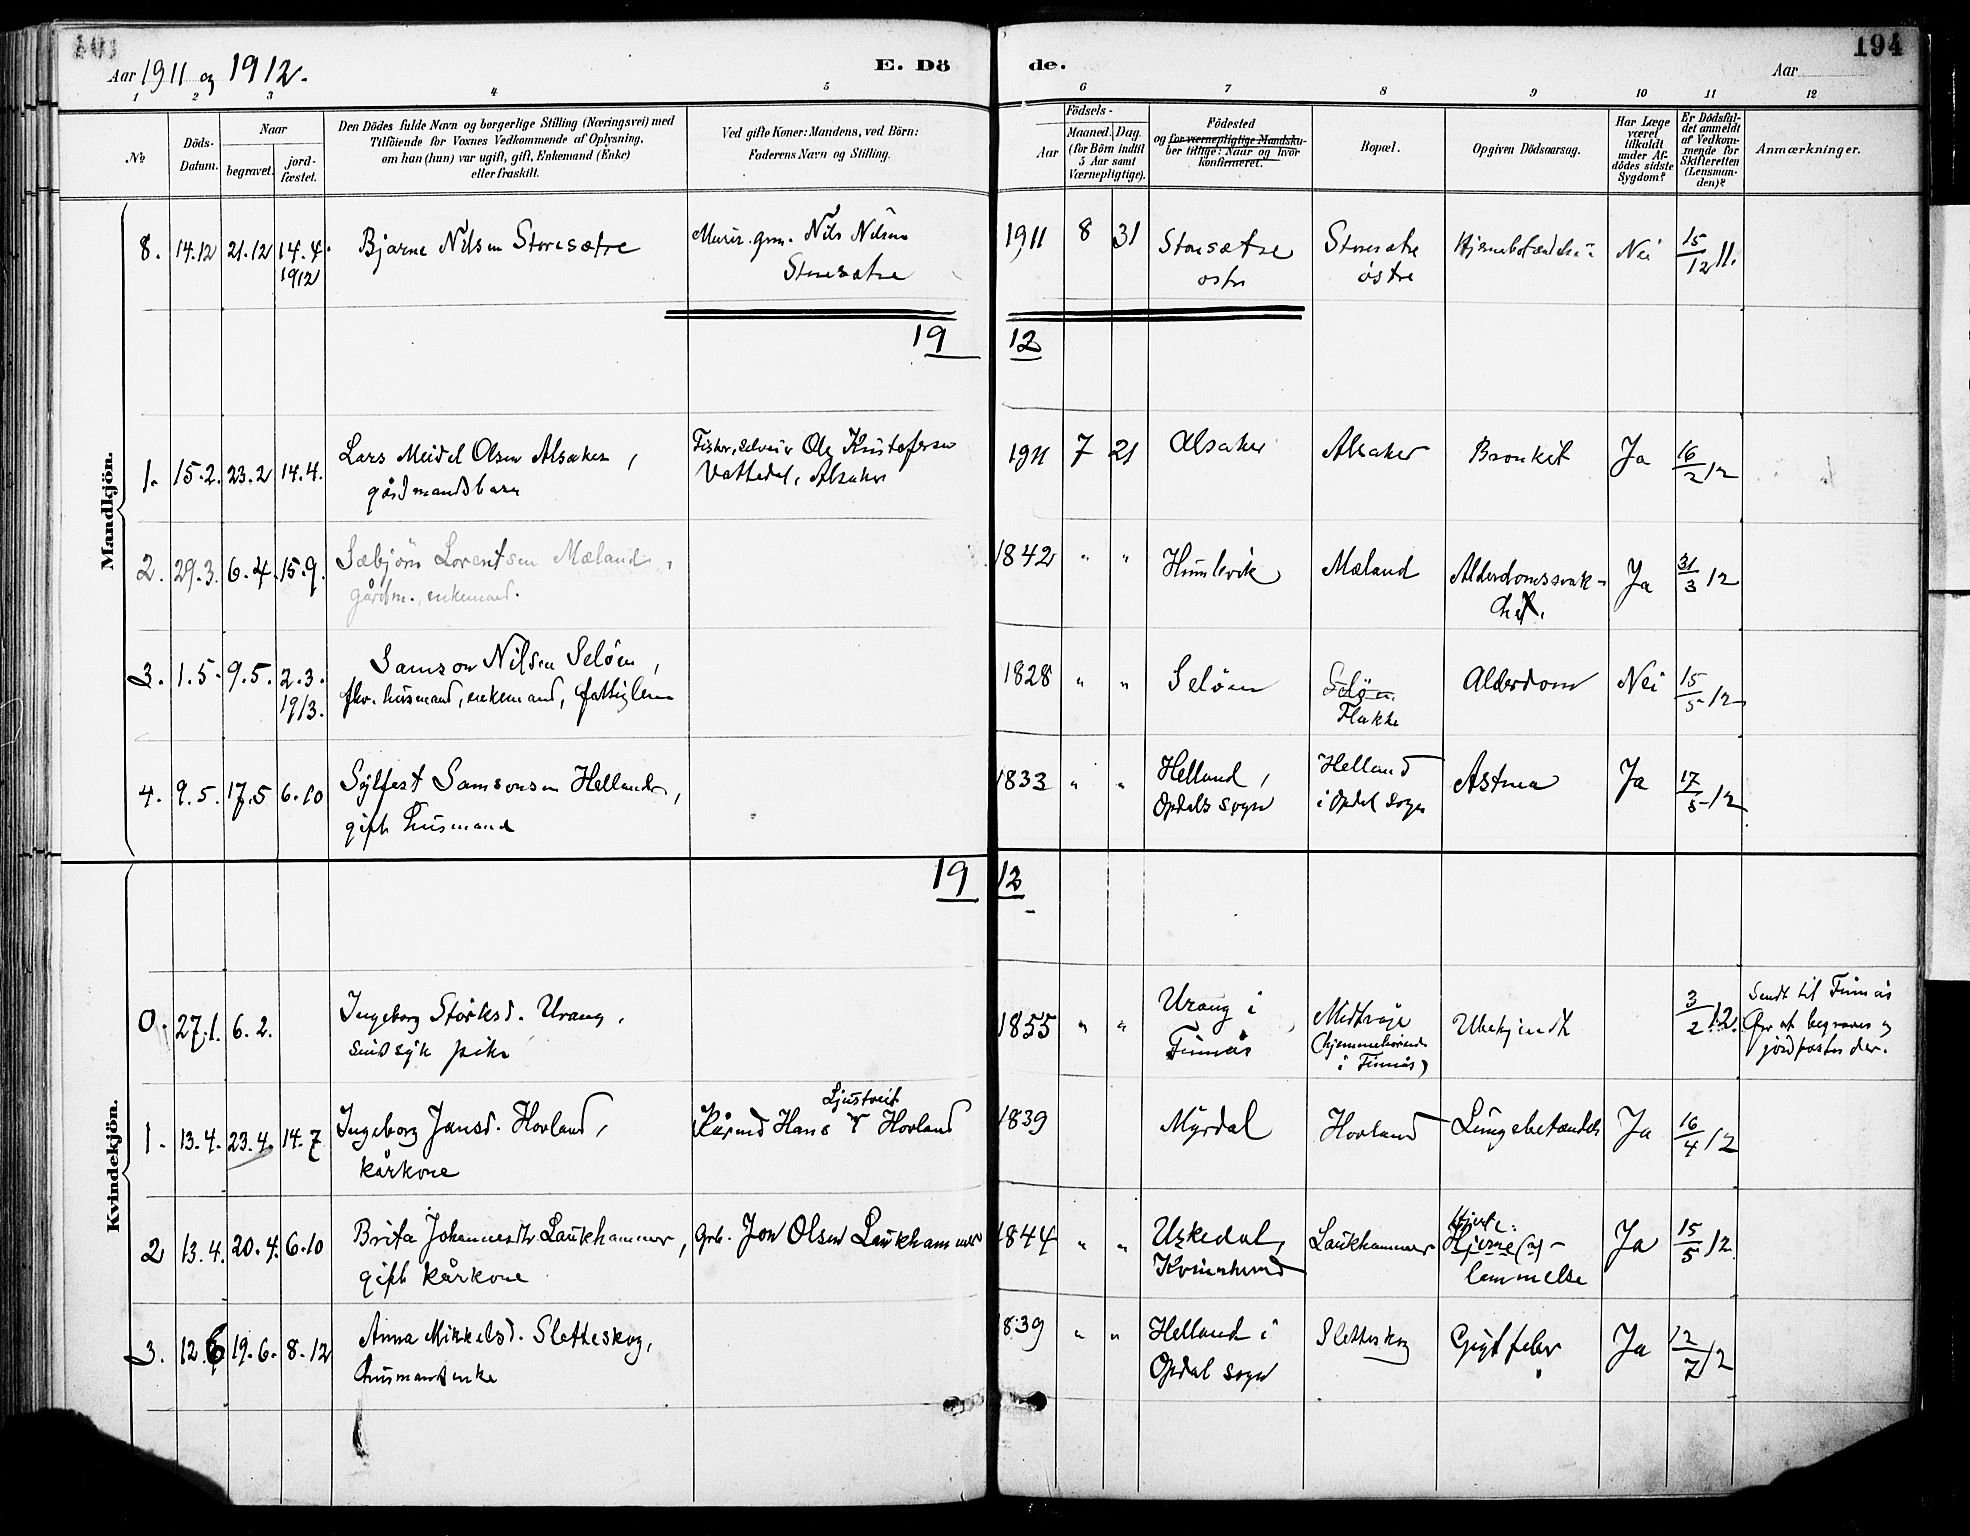 Aar 1911 og 1912.
E. Dö de.
Aar
194
1 2 3 4 5 6 7 8 9 10 11 12
No
Döds-Datum.
Naar
begravet.
jord-fæstet.
Den Dödes fulde Navn og borgerlige Stilling (Næringsvei) med
Tilföiende for Voxnes Vedkommende af Oplysning,
om han (hun) var ugift, gift, Enkemand (Enke)
eller fraskilt.
Ved gifte Koner: Mandens, ved Börn:
Faderens Navn og Stilling.
Födsels-
Aar
Maaned. Dag.
(for Börn indtil
5 Aar samt
Værnepligtige).
Födested
og for værnepligtige Mandsku-
ber tillige: Naar og hvor
konfirmeret.
Bopæl.
Opgiven Dödsaarsag.
Har Læge
været
tilkaldt
under Af-
dödes sidste
Sygdom?
Er Dödsfal-
det anmeldt
af Vedkom-
mende for
Skifteretten
(Lensman-
den)?
Anmærkninger.
Mandkjön.
8. 14.12 21.12 14.4. 1912 Bjarne Nilsen Storesætre
Nils Nilsen
Storesætre
1911 8 31 Storesætre østre
Storesætre østre
Nei 15/12 11.
19 12
1. 15.2. 23.2 14.4. Lars Meidel Olsen Alsaker,
gårdmandsbarn
Fisker, Ole Kristofersen
Vattedal, Alsaker
1911 7 21 Alsaker Alsaker Bronkit Ja 16/2 12
2. 29.3. 6.4. 15.9. Sæbjörn Lorentsen Mæland,
gårdm. enkemand.
1842 " " Humlevik Mæland Alderdomssvak-
het. Ja 31/3 12
3. 1.5. 9.5. 2.3. 1913. Samson Nilsen Selöen,
fhv. husmand, enkemand, fattiglem
1828 " " Selöen Selöen Flakke Alderdom Nei 15/5 12
4. 9.5. 17.5 6.10 Sylfest Samsonsen Helland,
gift husmand
1833 " " Helland, Opdals sogn
Helland i Opdal sogn Astma Ja 17/5 12
Kvindekjön.
19 12
0. 27.1. 6.2. Ingeborg Störksd. Urang,
sindsyk pike
1855 " " Urang i Finnås
(hjemmehörende
i Finnås)
Ubekjendt 3/2 12.
Sendt til Finnås
for at begraves og
jordfæstes der.
1. 13.4. 23.4. 14.7 Ingeborg Jansd. Hovland,
kårkone
Ljustveit
Kårmd Hans Hovland
1839 Myrdal Hovland Lungebetændelse Ja 16/4 12
2 13.4. 20.4. 6.10 Brita Johannesdtr Laukhammer,
gift kårkone
Grb. Jon Olsen Laukhammer
1844 " " Uskedal, Kvinnherred
Laukhammer Hjerte-
Hjerne(?)-
lammelse Ja 15/5 12
3. 12.6 19.6. 8.12 Anna Mikkelsd. Sletteskog,
husmandsenke
1839 " " Helland i Opdal sogn
Sletteskog Gigtfeber Ja 12/7 12